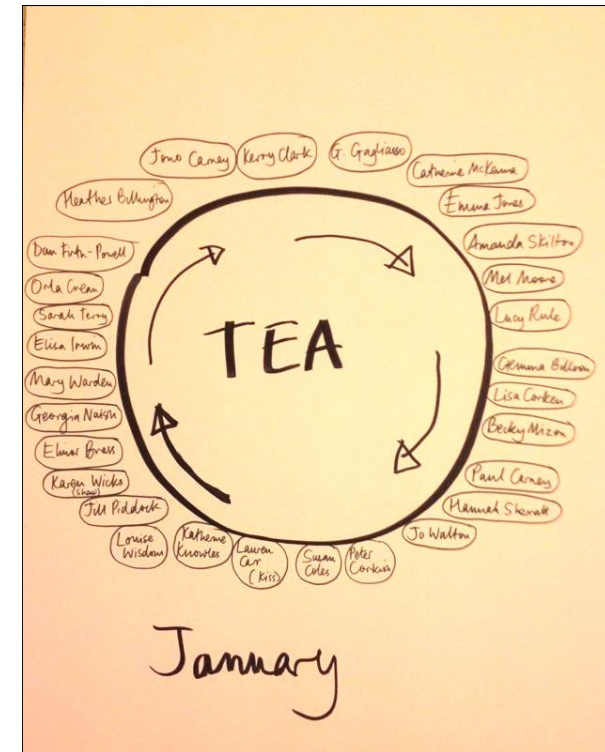 Jono Carney
Kerry Clark
G. Gagliasso
Catherine McKenna
Emma Jones
Amanda Skilton
Mel Moore
Lucy Rule
Gemma
Lisa Corken
Becky Mizon
Paul Carney
Hannah
Jo Walton
Peter
Corkin
Susan
Coles
Lauren
Carr
(Kiss)
Katherine
Knowles
Louise
Wisdom
Jill Piddock
Karen Wicks
(Shaw)
Elinor Brass
Georgia Naish
Mary Warden
Elisa Irwin
Sarah Terry
Orla Crean
Dan Firth-Powell
Heather Billington
TEA
January